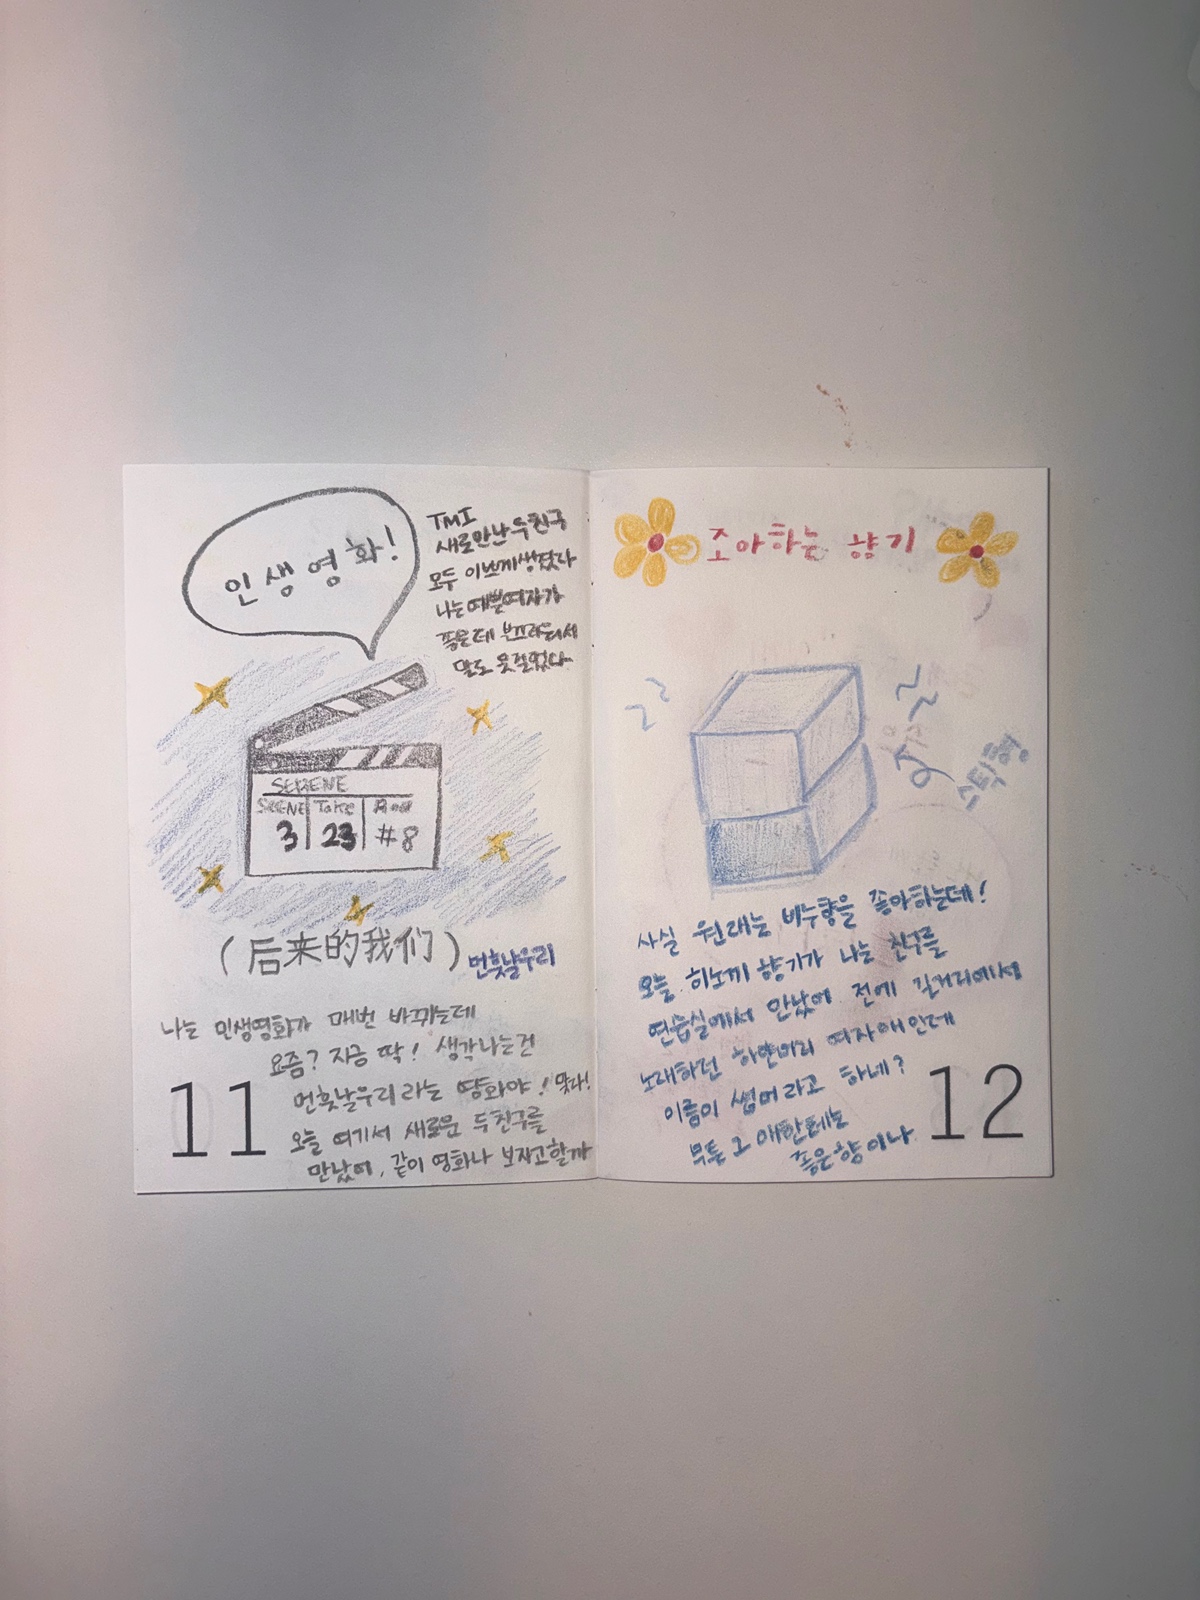 인생영화!
TMI
새로만난 두친구
모두 이쁘게생겼다
나는 예쁜여자가
좋은데 부끄러워서
말도 못걸었다
SCENE Take
3 23 #8
(后来的我们) 먼훗날우리
나는 인생영화가 매번 바뀌는데
요즘? 지금 딱! 생각나는건
먼훗날우리 라는 영화야! 맞다!
오늘 여기서 새로운 두친구를
만났어, 같이 영화나 보자고할까
11
조아하는 향기
사실 원래는 비누향을 좋아하는데!
오늘 히노끼 향기가 나는 친구를
연습실에서 만났어 전에 길거리에서
노래하던 하얀머리 여자애인데
이름이 썸머라고 하네?
무튼 그 애한테는
좋은향이나
12